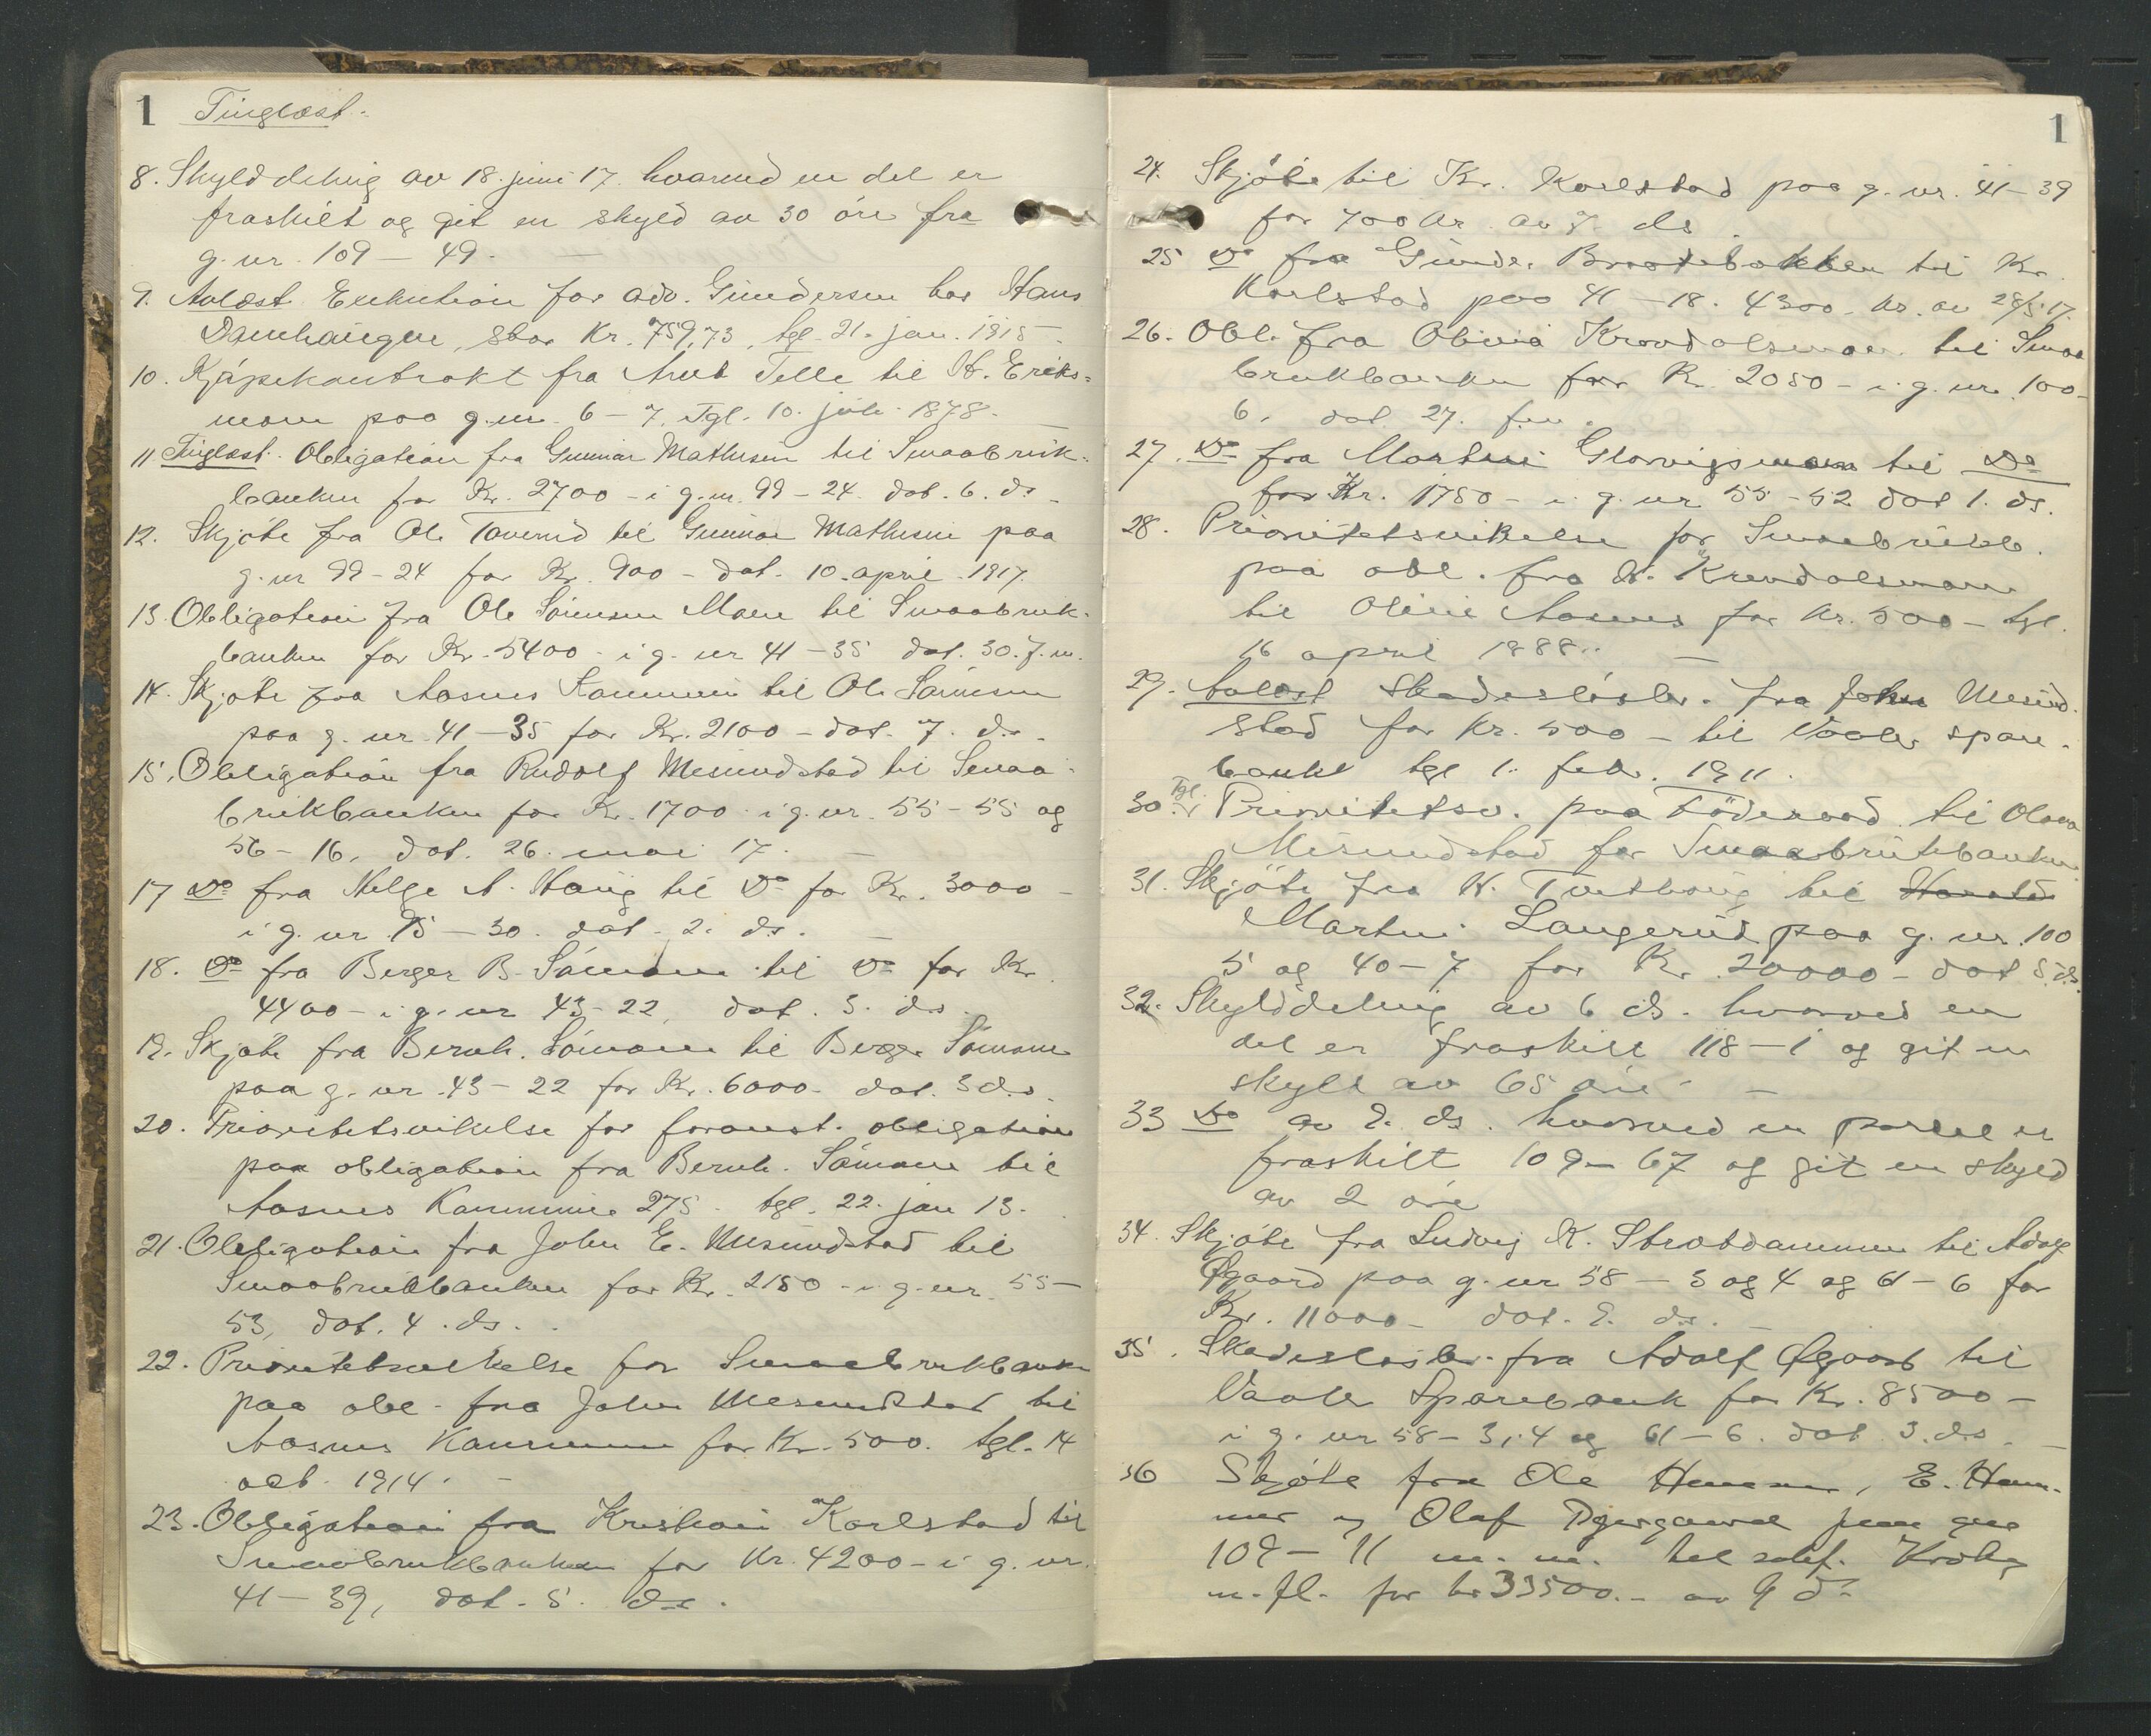 1 Tinglæst.
8. Skylddeling av 18. juni 17. hvormed en del er
fraskilt og git en skyld av 30 øre fra
g. nr. 109 – 49. –
9. Avlæst Exekution for adv. Gundersen hos Hans
stor Kr. 759,73, tgl. 21. jan. 1915 –
10. Kjøpekontrakt fra Arnt Telle til H. Eriks=
moen paa g. nr. 6 – 7, Tgl. 10. juli 1878. –
11 Tinglæst. Obligation fra Gunnar Mathesen til Smaabruk-
banken for Kr. 2700 – i g. nr. 99 – 24. dat. 6. ds –
12. Skjøte fra Ole Taverud til Gunnar Mathesen paa
g. nr 99 – 24 for Kr. 900 – dat. 10. april 1917.
13. Obligation fra Ole Sørensen Moen til Smaabruk-
banken for Kr. 5400 – i g. nr 41 – 35 dat. 30. f. m.
14. Skjøte fra Aasnes Kommune til Ole Sørensen
paa g. nr. 41 – 35 for Kr. 2100 – dat. 7. ds.
15. Obligation fra Rudolf Mesundstad til Smaa-
brukbanken for Kr. 1700 i g. nr. 55 – 55 og
56 – 16, dat. 26. mai 17. –
17 Do fra Helge A. Haug til Do for Kr. 3000 –
i g. nr 95 – 30. dat. 2. ds. –
18. Do fra Berger B. Sømoen til Do for Kr.
4400 – i g. nr 43 – 22, dat. 3. ds.
19. Skjøte fra Bernh. Sømoen til Berger Sømoen
paa g. nr. 43 – 22 for Kr. 6000 – dat. 3 ds.
20. Prioritetsvikelse for foranst. obligation
paa obligation fra Bernh. Sømoen til
Aasnes Kommune 275 – tgl. 22. jan 13.
21. Obligation fra John E. Mesundstad til
Smaabrukbanken for Kr. 2150 – i g. nr. 55 –
53, dat. 4. ds.
22. Prioritetsvikelse for Smaabrukbanken
paa obl. fra John Mesundstad til
Aasnes Kommune for Kr. 500. tgl. 14
okt. 1914. –
23. Obligation fra Kristian Karlstad til
Smaabrukbanken for Kr. 4200 – i g. nr.
41 – 39, dat. 5. ds.
1
24. Skjøte til Kr. Karlstad paa g. nr. 41 – 39
for 700 kr. av 7. ds.
25 Do fra Gunder til Kr.
Karlstad paa 41 – 18. 4300 – kr. av 28/5 17.
26. Obl. fra Olivia til Smaa
brukbanken for Kr. 2050 – i g. nr. 100 –
6. dat. 27. f. m.
27. Do fra Martin Glorvigsmoen til Do
for Kr. 1750 – i g. nr 55 – 52 dat 1. ds.
28. Prioritetsvikelse for Smaabrukb.
paa obl. fra
til Aasnes for kr. 500 – tgl.
16 april 1888. –
29. Avlæst Skadesløsbr. fra John Mesund-
stad for Kr. 500 – til Vaaler spare-
bank tgl 1. febr. 1911.
30. Tgl. Prioritetsv. paa Føderaad til Olava
Mesundstad for Smaabrukbanken
31. Skjøte fra H. til Harald
Martin Langerud paa g. nr. 100
5 og 40 – 7 for Kr. 20000 – dat 5 ds.
32. Skylddeling av 6 ds. hvorved en
del er fraskilt 118 – 1 og git en
skyld av 65 øre. –
33 Do av 8. ds. hvorved en parsel er
fraskilt 109 – 67 og git en skyld
av 2 øre
34. Skjøte fra Ludvig K. Strøtdammen til Adolf
Øgaard paa g. nr 58 – 3 og 4 og 61 – 6 for
Kr. 11000 – dat. 8. ds. –
35. Skadesløsbr. fra Adolf Øgaard til
Vaaler Sparebank for Kr. 8500 –
i g. nr 58 – 3, 4 og 61 – 6. dat. 3. ds. –
36 Skjøte fra Ole Hammer, E. Ham-
mer og Olaf paa gnr
109 – 11 m. m. til
m. fl. for kr 33500. – av 9 ds